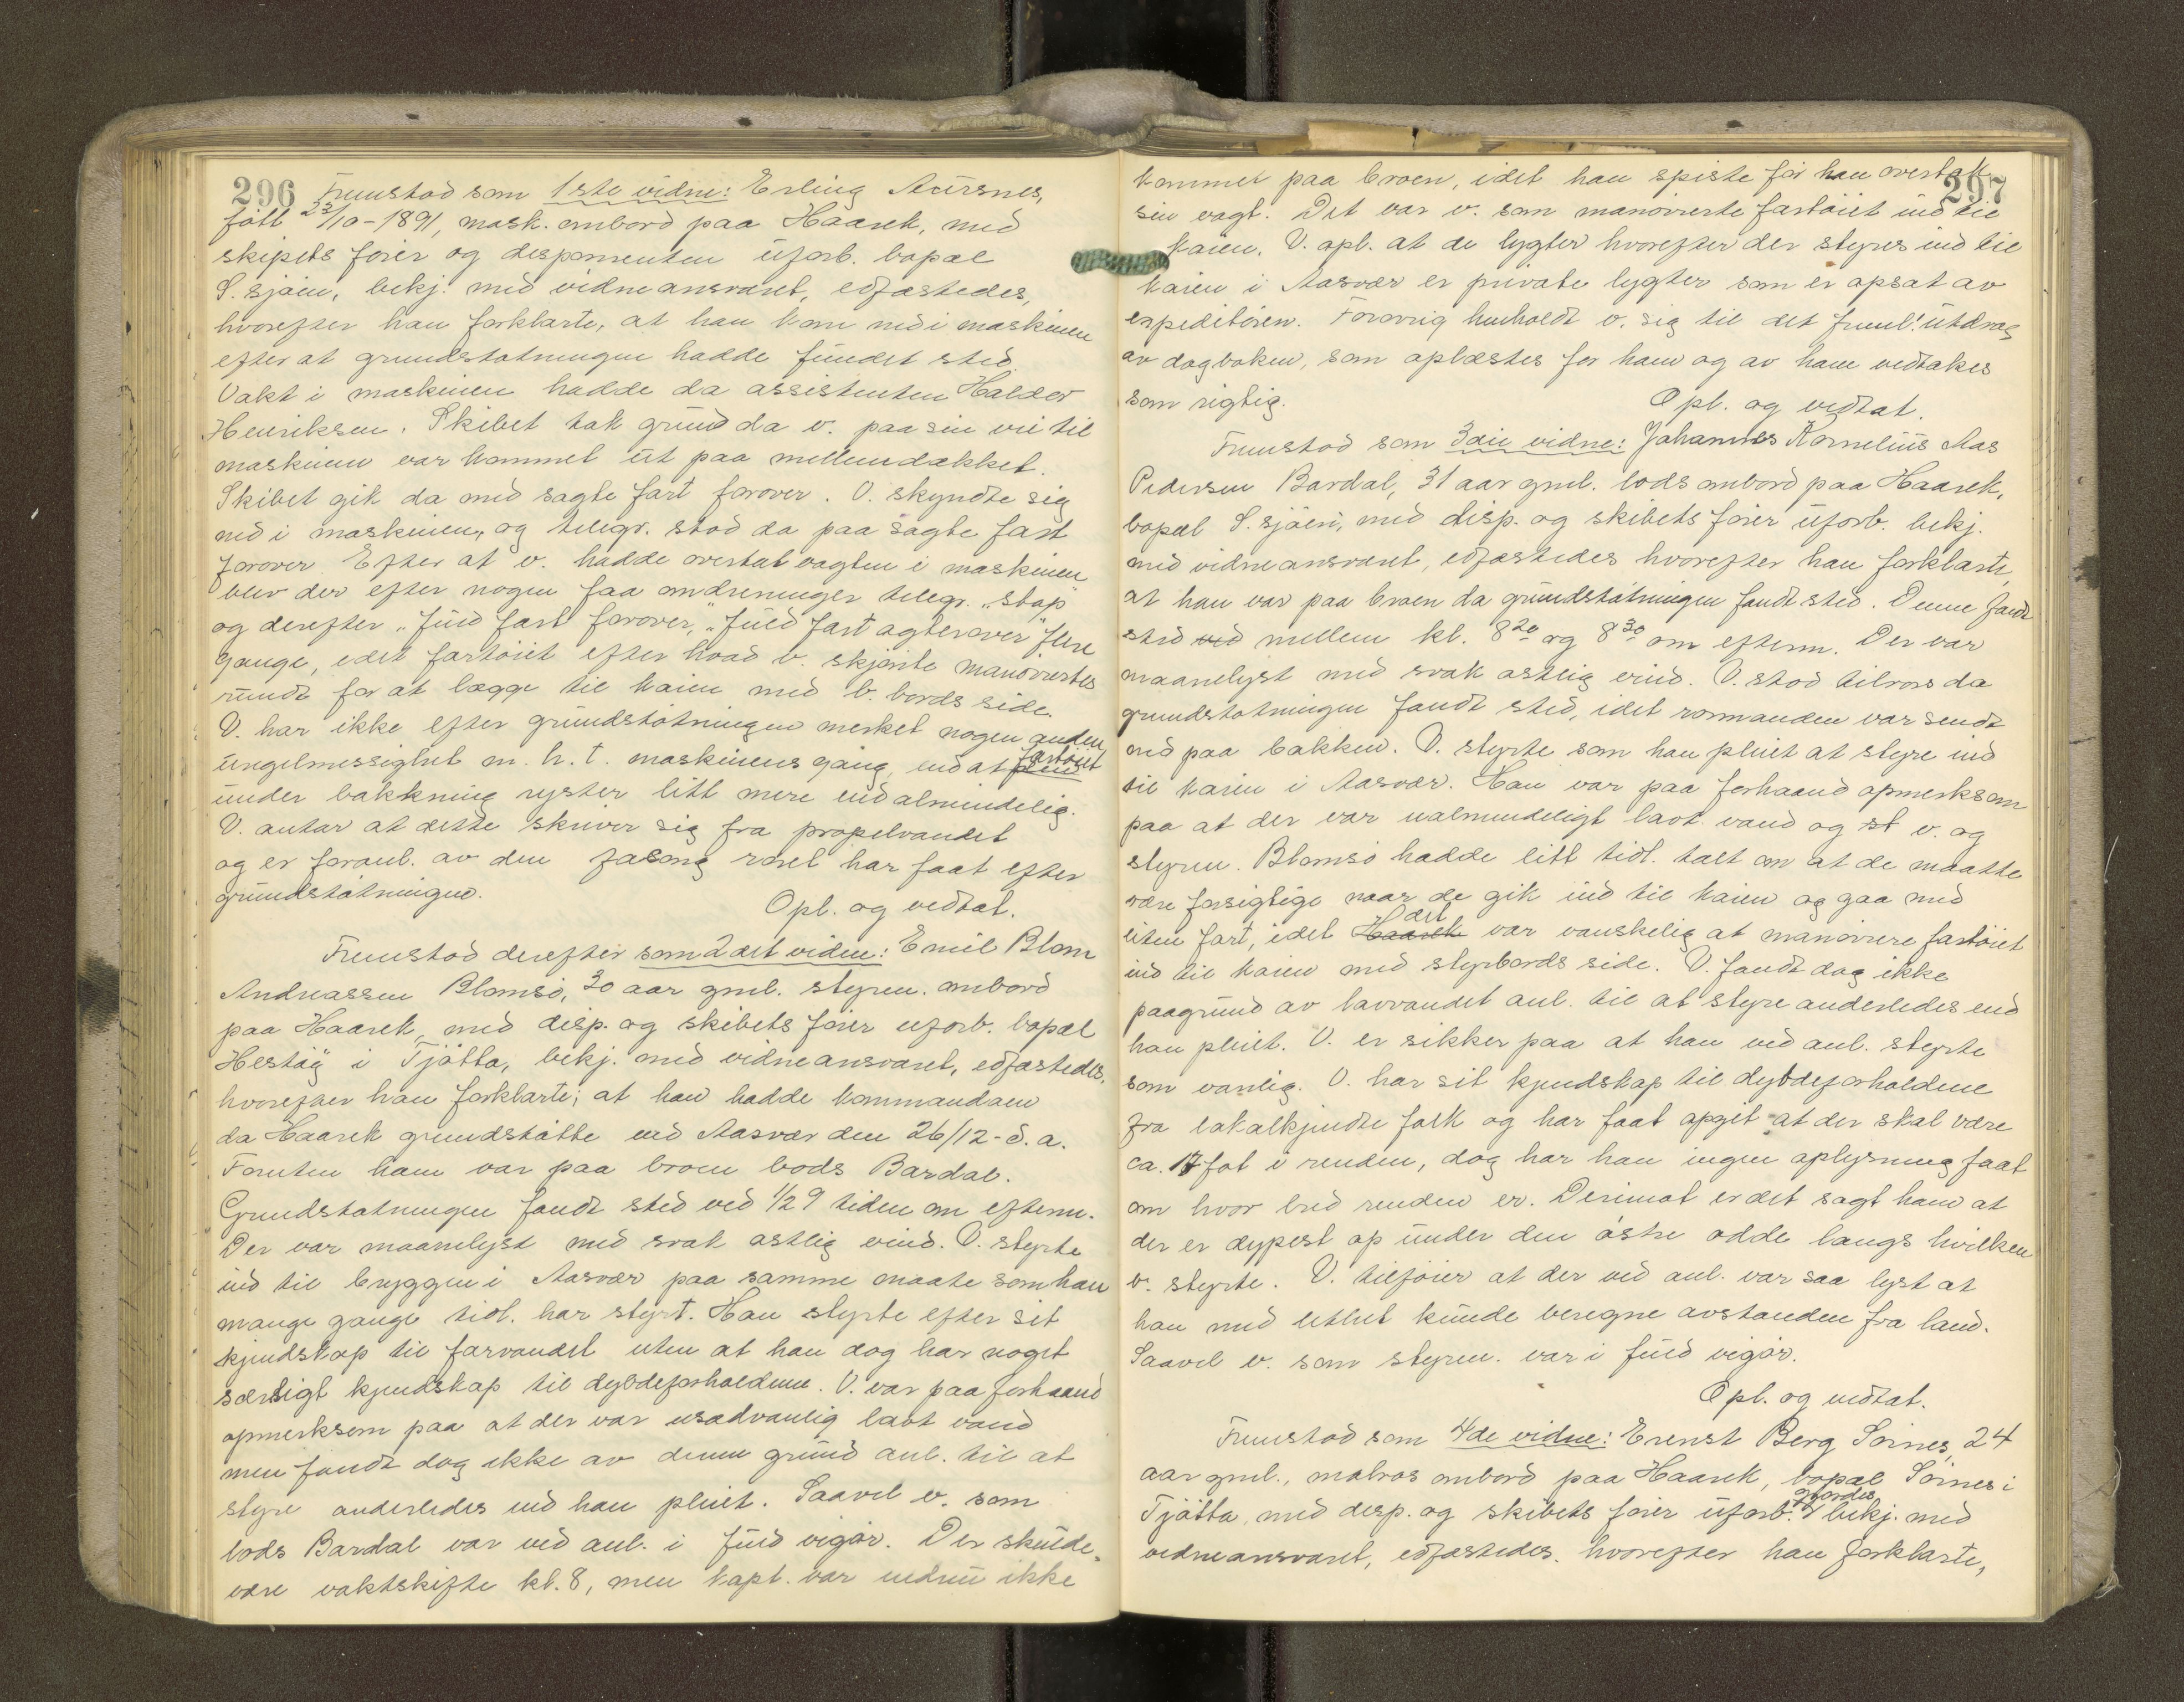 296
Fremstod som 1ste vidne: Erling Aursnes,
født 23/10-1891, mask. ombord paa Haarek, med
skipets fører og disponenten uforb. bopæl
S.sjøen, bekj. med vidneansvaret, edfæstedes,
hvorefter han forklarte, at han kom ned i maskinen
efter at grundstøtningen hadde fundet sted.
Vakt i maskinen hadde da assistenten Haldor
Henriksen. Skibet tok grund da v. paa sin vei til
maskinen var kommet ut paa mellemdækket.
Skibet gik da med sagte fart forover. V. skyndte sig
ned i maskinen, og telegr. stod da paa sagte fart
forover. Efter at v. hadde overtat vagten i maskinen
blev der efter nogen faa omdreininger telegr. "stop"
og derefter "fuld fart forover," "fuld fart agterover" flere
gange, idet fartøiet efter hvad v. skjønte manøvrertes
rundt for at lægge til kaien med b. bords side.
V. har ikke efter grundstøtningen merket nogen anden
uregelmessighet m. h. t. maskinens gang, end at fartøiet
under bakkning ryster litt mere end almindelig.
V. antar at dette skriver sig fra propelvandet
og er foranl. av den fasong roret har faat efter
grundstøtningen.
Opl. og vedtat.
Fremstod derefter som 2det vidne: Emil Blom
Andreassen Blomsø, 30 aar gml. styrm. ombord
paa Haarek, med disp. og skibets fører uforb. bopæl
Hestøy i Tjøtta, bekj. med vidneansvaret, edfæstedes,
hvorefter han forklarte; at han hadde kommandoen
da Haarek grundstøtte ved Aasvær den 26/12- d. a.
Foruten ham var paa broen lods Bardal.
Grundstøtningen fandt sted ved 1/2 9 tiden om efterm.
Der var maanelyst med svak østlig vind. V. styrte
ind til bryggen i Aasvær paa samme maate som han
mange gange tidl. har styrt. Han styrte efter sit
kjendskap til farvandet uten at han dog har noget
særligt kjendskap til dybdeforholdene. V. var paa forhaand
opmerksom paa at der var usædvanlig lavt vand
men fandt dog ikke av denne grund anl. til at
styre anderledes end han pleiet. Saavel v. som
lods Bardal var ved anl. i fuld vigør. Der skulde
være vaktskifte kl. 8, men kapt. var endnu ikke
297
kommet paa broen, idet han spiste før han overtok
sin vagt. Det var v. som manøvrerte fartøiet ind til
kaien. V. opl. at de lygter hvorefter der styres ind til
kaien i Aasvær er private lygter som er opsat av
expeditøren. Forøvrig henholdt v. sig til det freml. utdrag
av dagboken, som oplæstes for ham og av ham vedtakes
som rigtig.
Opl. og vedtat.
Fremstod som 3die vidne: Johannes Kornelius Aas
Pedersen Bardal, 31 aar gml. lods ombord paa Haarek,
bopæl S.sjøen, med disp. og skibets fører uforb. bekj.
med vidneansvaret, edfæstedes hvorefter han forklarte,
at han var paa broen da grundstøtningen fandt sted. Denne fandt
sted ved mellem kl. 8 20 og 8 30 om efterm. Der var
maanelyst med svak østlig vind. V. stod tilrors da
grundstøtningen fandt sted, idet rormanden var sendt
ned paa bakken. V. styrte som han pleiet at styre ind
til kaien i Aasvær. Han var paa forhaand opmerksom
paa at der var ualmindeligt lavt vand og st v. og
styrm. Blomsø hadde litt tidl. talt om at de maatte
være forsigtige naar de gik ind til kaien og gaa med
liten fart, idet Haarek det var vanskelig at manøvrere fartøiet
ind til kaien med styrbords side. V. fandt dog ikke
paagrund av lavvandet anl. til at styre anderledes end
han pleiet. V. er sikker paa at han ved anl. styrte
som vanlig. V. har sit kjendskap til dybdeforholdene
fra lokalkjendte folk og har faat opgit at der skal være
ca. 17 fot i renden, dog har han ingen oplysning faat
om hvor bred renden er. Derimot er det sagt ham at
der er dypest op under den østre odde langs hvilken
v. styrte. V. tilføier at der ved anl. var saa lyst at
han med lethet kunde beregne avstanden fra land.
Saavel v. som styrm. var i fuld vigør.
Opl. og vedtat.
Fremstod som 4de vidne: Erenst Berg Sørnes, 24
aar gml., matros ombord paa Haarek, bopæl Sørnes i
Tjøtta, med disp. og skibets fører uforb. gjordes bekj. med
vidneansvaret, edfæstedes. hvorefter han forklarte,